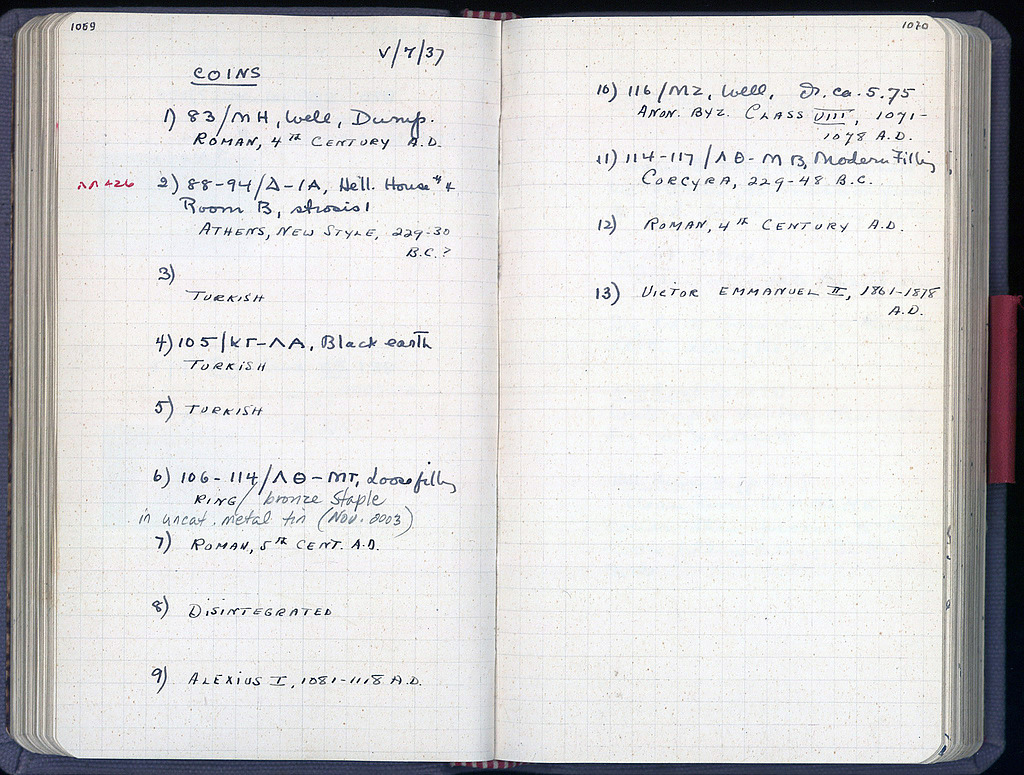 1069
V/7/37
COINS
1) 83/MH, Well, Dump.
ROMAN, 4TH CENTURY A.D.
ΛΛ 426 2) 88-94/Δ-ΙΑ, Hell. House #4
Room B, strosis 1
ATHENS, NEW STYLE, 229-30
B.C.?
3)
TURKISH
4) 105/ΚΓ-ΛΑ, Black earth
TURKISH
5) TURKISH
6) 106-114/ΛΘ-ΜΓ, Loose filling
RING / bronze staple
in uncat. metal tin (Nov. 2003)
7) ROMAN, 5TH CENT. A.D.
8) DISINTEGRATED
9) ALEXIUS I, 1081-1118 A.D.
1070
10) 116/ΜΖ, Well, ca. 5.75
ANON. BYZ. CLASS VIII, 1071-
1078 A.D.
11) 114-117/ΛΘ-ΜΒ, Modern Filling
CORCYRA, 229-48 B.C.
12) ROMAN, 4TH CENTURY A.D.
13) VICTOR EMMANUEL II, 1861-1878
A.D.